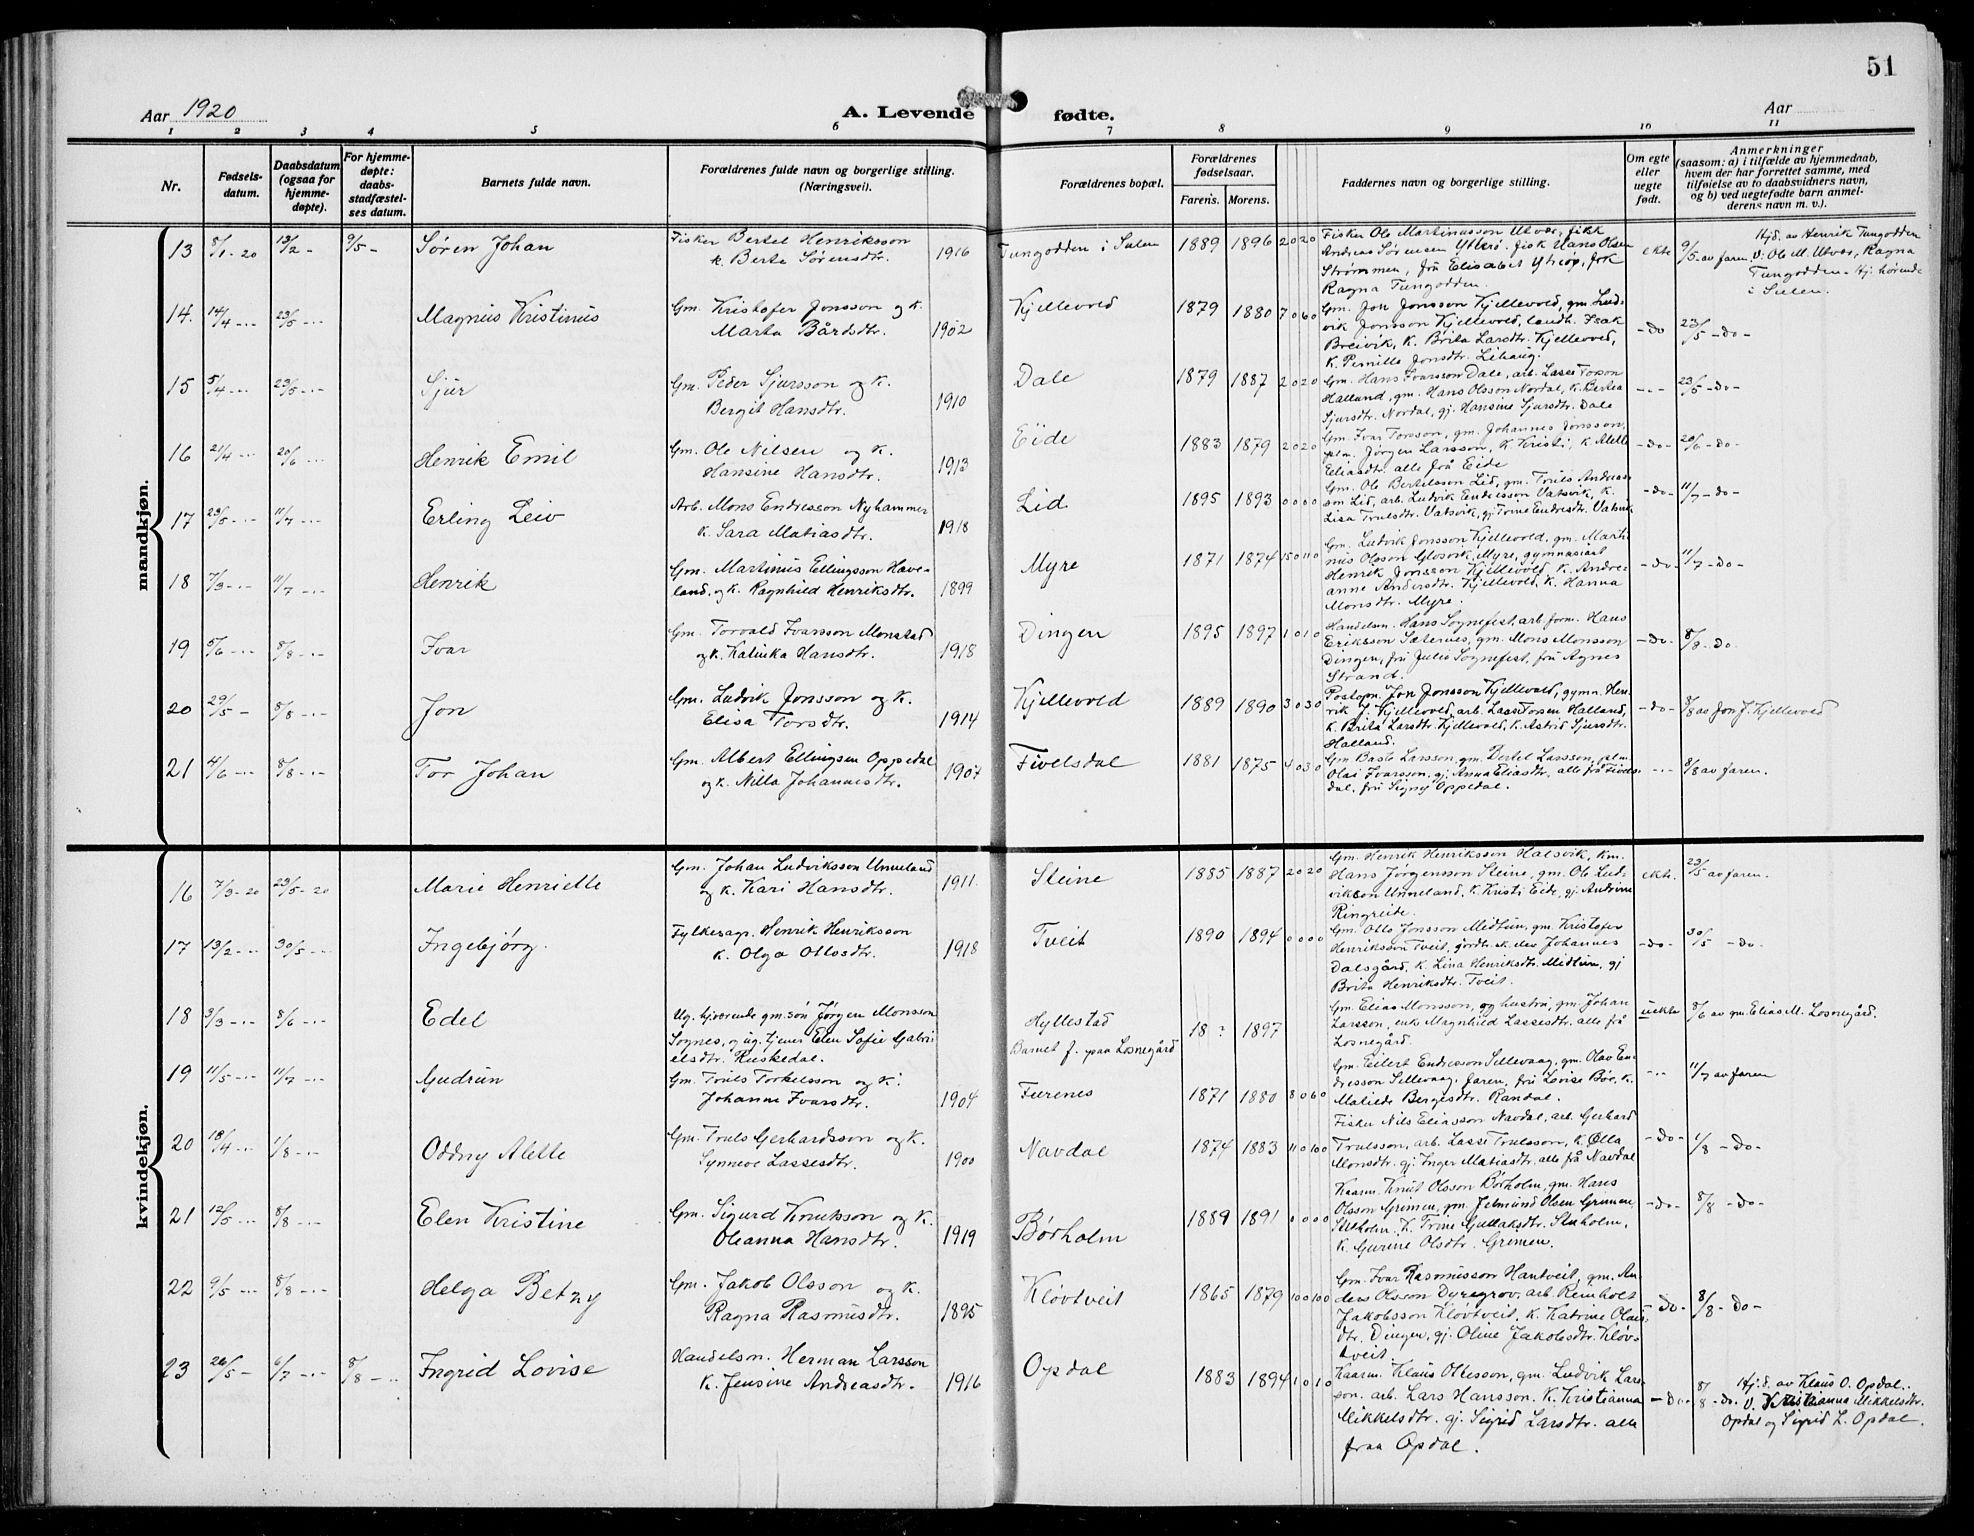 51
Aar 1920
A. Levende fødte.
Aar
1 2 3 4 5 6 7 8 9 10 11
Nr.
Fødselsdatum.
Daabsdatum (ogsaa for hjemmedøpte).
For hjemmedøpte: daabsstadfæstelses datum.
Barnets fulde navn.
Forældrenes fulde navn og borgerlige stilling. (Næringsvei).
Forældrenes bopæl.
Forældrenes fødselsaar.
Farens. Morens.
Faddernes navn og borgerlige stilling.
Om egte eller uegte født.
Anmerkninger
(saasom: a) i tilfælde av hjemmedaab,
hvem der har forrettet samme, med
tilføielse av to daabsvidners navn,
og b) ved uegtefødte barn anmelderens navn m. v.).
mandkjøn.
13 8/1-20 13/2 - 9/5 - Søren Johan
Fisker Bertel Henriksson
k. Berte Sørensdtr. 1916
Tungodden i Sulen 1889 1896 2 0 2 0
Fisker Ole Martinusson Utvær, fisk
Andreas Sørensen Ytterø, fisk Hans Olsen
Strømmen, frú Elisabet Ytrøy, frk
Ragna Tungodden.
ekte 9/5 - av faren
Hjd. av Henrik Tungodden
v. Ole M. Utvær, Ragna
Tungodden - Hj. hørende
i Sulen.
14. 14/4 -.- 23/5 -.- Magnus Kristinus
Gm. Kristofer Jonsson og k.
Marta Bårdsdtr. 1902
Kjellevold 1879 1880 7 0 6 0
Gm. Jon Jonsson Kjellevold, gm. Ludvik Jonsson Kjellevold, landh. Isak
Breivik, k. Brita Larsdtr. Kjellevold,
k. Pernille Jonsdtr. Lihaug.
-do 23/5 -do-
15 5/4 -.- 23/5 -.- Sjur
Gm. Peder Sjursson og k.
Bergit Hansdtr. 1910
Dale 1879 1887 2 0 2 0
Gm. Hans Ivarsson Dale, arb. Lasse Torson
Halland, gm. Hans Olsson Nordal, k. Bertea
Sjursdtr. Nordal, gj. Hansine Sjursdtr. Dale
-.- 23/5 -do-
16 21/4 -.- 20/6 -.- Henrik Emil
Gm. Ole Nilsen og k.
Hansine Hansdtr. 1913
Eide 1883 1879 2 0 2 0
Gm. Ivar Torsson, gm. Johannes Jonsson,
Jørgen Larsson, k. Kristi, k. Alette
Eliasdtr. alle frå Eide
-do- 20/6 -do-
17 23/5 -.- 11/7 -.- Erling Leiv
Arb. Mons Endresson Nyhammer
k. Sara Matiasdtr. 1918
Lid 1895 1893 0 0 0 0
Gm. Ole Bertelsson Lid, gm. Truls Andreasson Lid, arb. Ludvik Endresson Vatsvik, k.
Lisa Trulsdtr. Vatsvik, gj. Trine Endresdtr. Vatsvik
-do- 11/7 -do-
18 7/3 -.- 11/7 -.- Henrik
Gm. Martinus Ellingsson Haveland, og k. Ragnhild Henriksdtr. 1899
Myre 1871 1874 15 0 11 0
Gm. Ludvik Jonsson Kjellevold, gm. Martinus Olsson Glosvik, Myre, gymnasiast
Henrik Jonsson Kjellevold, k. Andreanne Andersdtr. Kjellevold, k. Hanna
Monsdtr. Myre.
-do- 11/7 -do-
19 5/6 -.- 8/8 -.- Ivar
Gm. Torvald Ivarsson Monstad
og k. Kalinka Hansdtr. 1918
Dingen 1895 1897 1 0 1 0
Handelsm. Hans Sognefest, arb. form. Hans
Eriksson Sæternes, gm. Mons Monsson
Dingen, frú Julie Sognefest, frú Agnes
Strand.
-do- 8/8 -do.
20 29/5 - 8/8 -.- Jon
Gm. Ludvik Jonsson og k.
Elisa Torsdtr. 1914
Kjellevold 1889 1890 3 0 3 0
Postopn. Jon Jonsson Kjellevold, gymn. Henrik J. Kjellevold, arb. Lasse Torsen Halland,
k. Brita Larsdtr. Kjellevold, k. Astrid Sjursdtr.
Halland.
-do- 8/8 av Jon J. Kjellevold
21 4/6 -.- 8/8 -.- Tor Johan
Gm. Albert Ellingsen Oppedal
og k. Nilla Johannesdtr. 1907
Fivelsdal 1881 1875 4 0 3 0
Gm Larsson, gm. Bertel Larsson,
Olai Ivarsson, gj. Anna Eliasdtr., alle frå Fivelsdal, frú Signy Oppedal.
-.- 8/8 av faren.
kvindekjøn.
16 7/3-20 23/5-20 Marie Henriette
Gm. Johan Ludviksson Unneland
og k. Kari Hansdtr. 1911.
Steine 1885 1887 2 0 2 0
Gm. Henrik Henriksson Halsvik, km.
Hans Jørgensson Steine, gm. Ole Ludvikson Unneland, k. Kristi Eide, gj. Andrine
Ringreide.
ekte. 23/5 av faren.
17 13/2 -.- 30/5 -.- Ingebjørg.
Fylkesagr. Henrik Henriksson
k. Olga Ottosdtr. 1918
Tveit 1890 1894 0 0 0 0
Gm. Otto Jonsson Midtun, gm. Kristofer
Henriksson Tveit, jordbr.sk. elev Johannes
Dalsgård, k. Lina Henriksdtr. Midtun, gj
Brita Henriksdtr. Tveit.
-do- 30/5 -do.
18 3/3 -.- 8/6 -.- Edel
Ug. hjværende gm. søn Jørgen Monsson
Sognes, og ug. tjener Elen Sofie Gabrielsdtr. Ruskedal.
Hyllestad
Barnet f. paa Losnegård 18 ? 1897
Gm. Elias Monsson, og hustru, gm. Johan
Larsson, enk. Magnhild Lassesdtr. alle frå
Losnegård.
uekte 8/6 av gm. Elias M. Losnegård.
19 11/5 -.- 11/7 -.- Gudrun
Gm. Truls Torkelsson og k.
Johanne Ivarsdtr. 1904
Furenes 1871 1880 8 0 6 0
Gm. Eilert Endresson Sellevaag, gm. Olav Endresson Sellevaag, faren, frú Lovise Bøe, k.
Matilde Bergesdtr. Randal.
-.- 11/7 av faren
20 18/4 -.- 1/8 -.- Oddny Alette
Gm. Truls Gerhardsson og k.
Synneve Lassesdtr. 1900
Navdal 1874 1883 11 0 10 0
Fisker Nils Eliasson Navdal, arb. Gerhard
Trulsson, arb. Lasse Trulsson, k. Olla
Monsdtr. gj. Inger Matiasdtr. alle frå Navdal
-do- 1/8 -do-
21 12/5 -.- 8/8 -.- Elen Kristine
Gm. Sigurd Knutsson og k.
Oleanna Hansdtr. 1919
Børholm 1889 1891 0 0 0 0
Kaarm. Knut Olsson Børholm, gm. Hans
Olsson Grimen, gm. Jetmund Olsen Grimen,
k. Trine Gullaksdtr. Stuholm,
k. Gurine Olsdtr. Grimen.
-do- 8/8 -do-
22 9/5 -.- 8/8 -.- Helga Betzy
Gm. Jakob Olsson og k.
Ragna Rasmusdtr. 1895
Kløvtveit 1865 1879 10 0 10 0
Gm. Ivar Rasmusson Hantveit, gm. Anders Olsson Dyregrov, arb. Reinholt
Jakobsson Kløvtveit, k. Katrine Olaisdtr. Dingen, gj. Oline Jakobsdtr. Kløvtveit.
-do- 8/8 -do-
23 26/5 - 6/7 -.- 8/8 -.. Ingrid Lovise
Handelsm. Herman Larsson
k. Jensine Andreasdtr. 1916
Opdal 1883 1894 1 0 1 0
Kaarm. Klaus Ottesson, gm. Ludvik Larsson. arb. Lars Hansson. k. Kristianna
Mikkelsdtr. gj. Sigrid Larsdtr. alle
fraa Opdal.
-do- 8/8 -do.
Hj.d. av Klaus O. Opdal.
v. Kristianna Mikkelsdtr.
Opdal og Sigrid L. Opdal.